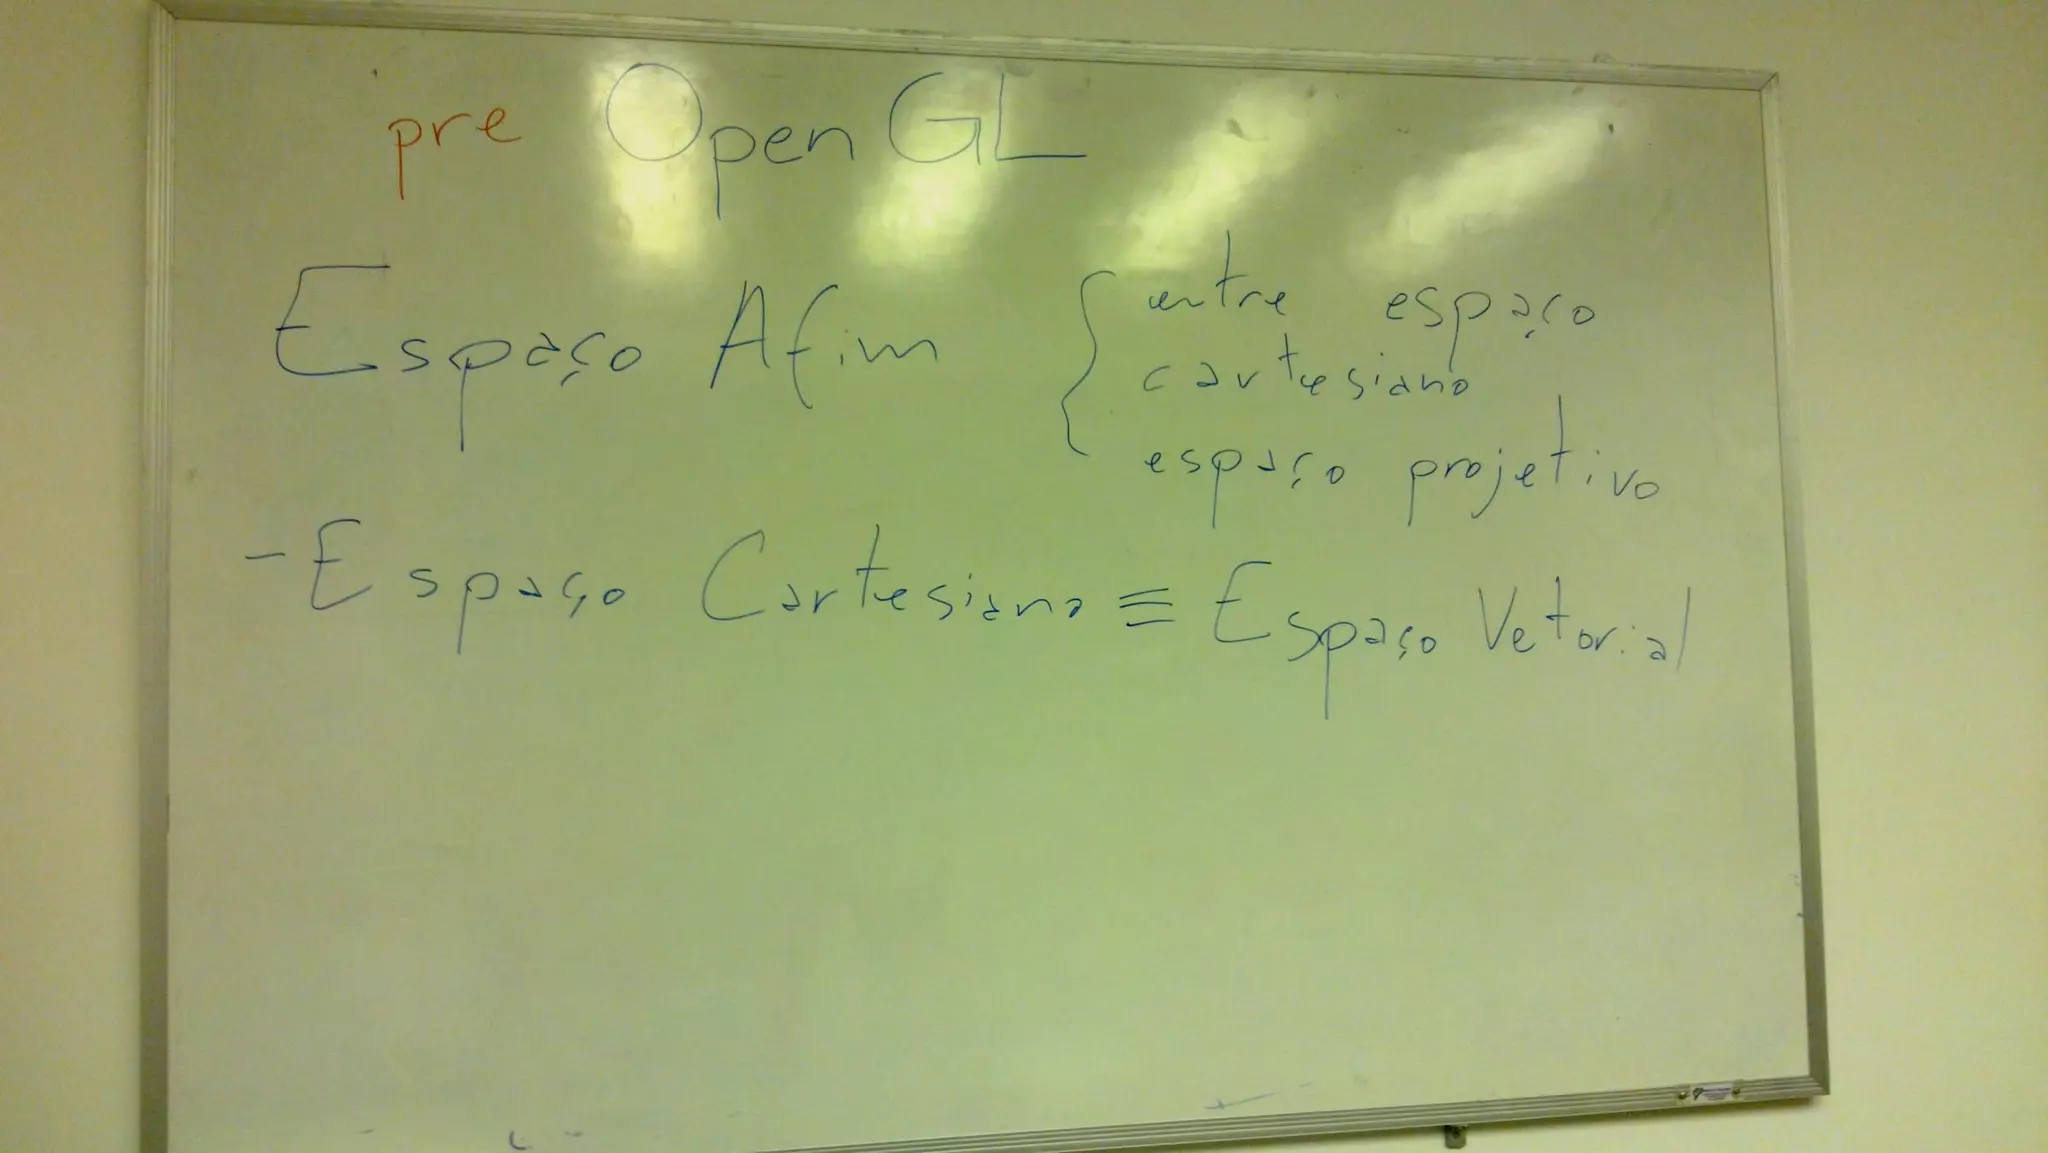 pre OpenGL
Espaço Afim { entre espaço
cartesiano
espaço projetivo
- Espaço Cartesiano ≡ Espaço Vetorial